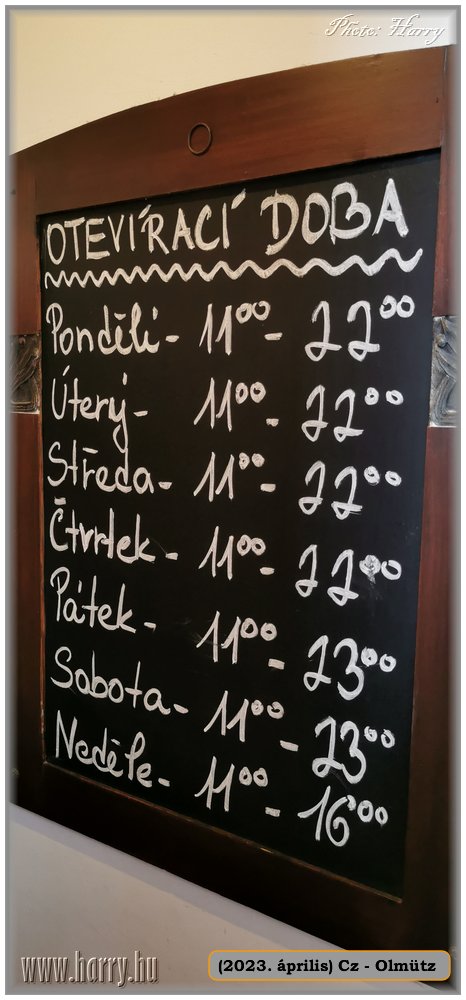 Photo: Harry
OTEVÍRACÍ DOBA
Pondělí - 11⁰⁰ - 22⁰⁰
Úterý - 11⁰⁰ - 22⁰⁰
Středa - 11⁰⁰ - 22⁰⁰
Čtvrtek - 11⁰⁰ - 22⁰⁰
Pátek - 11⁰⁰ - 23⁰⁰
Sobota - 11⁰⁰ - 23⁰⁰
Neděle - 11⁰⁰ - 16⁰⁰
www.harry.hu
(2023. április) Cz - Olmütz